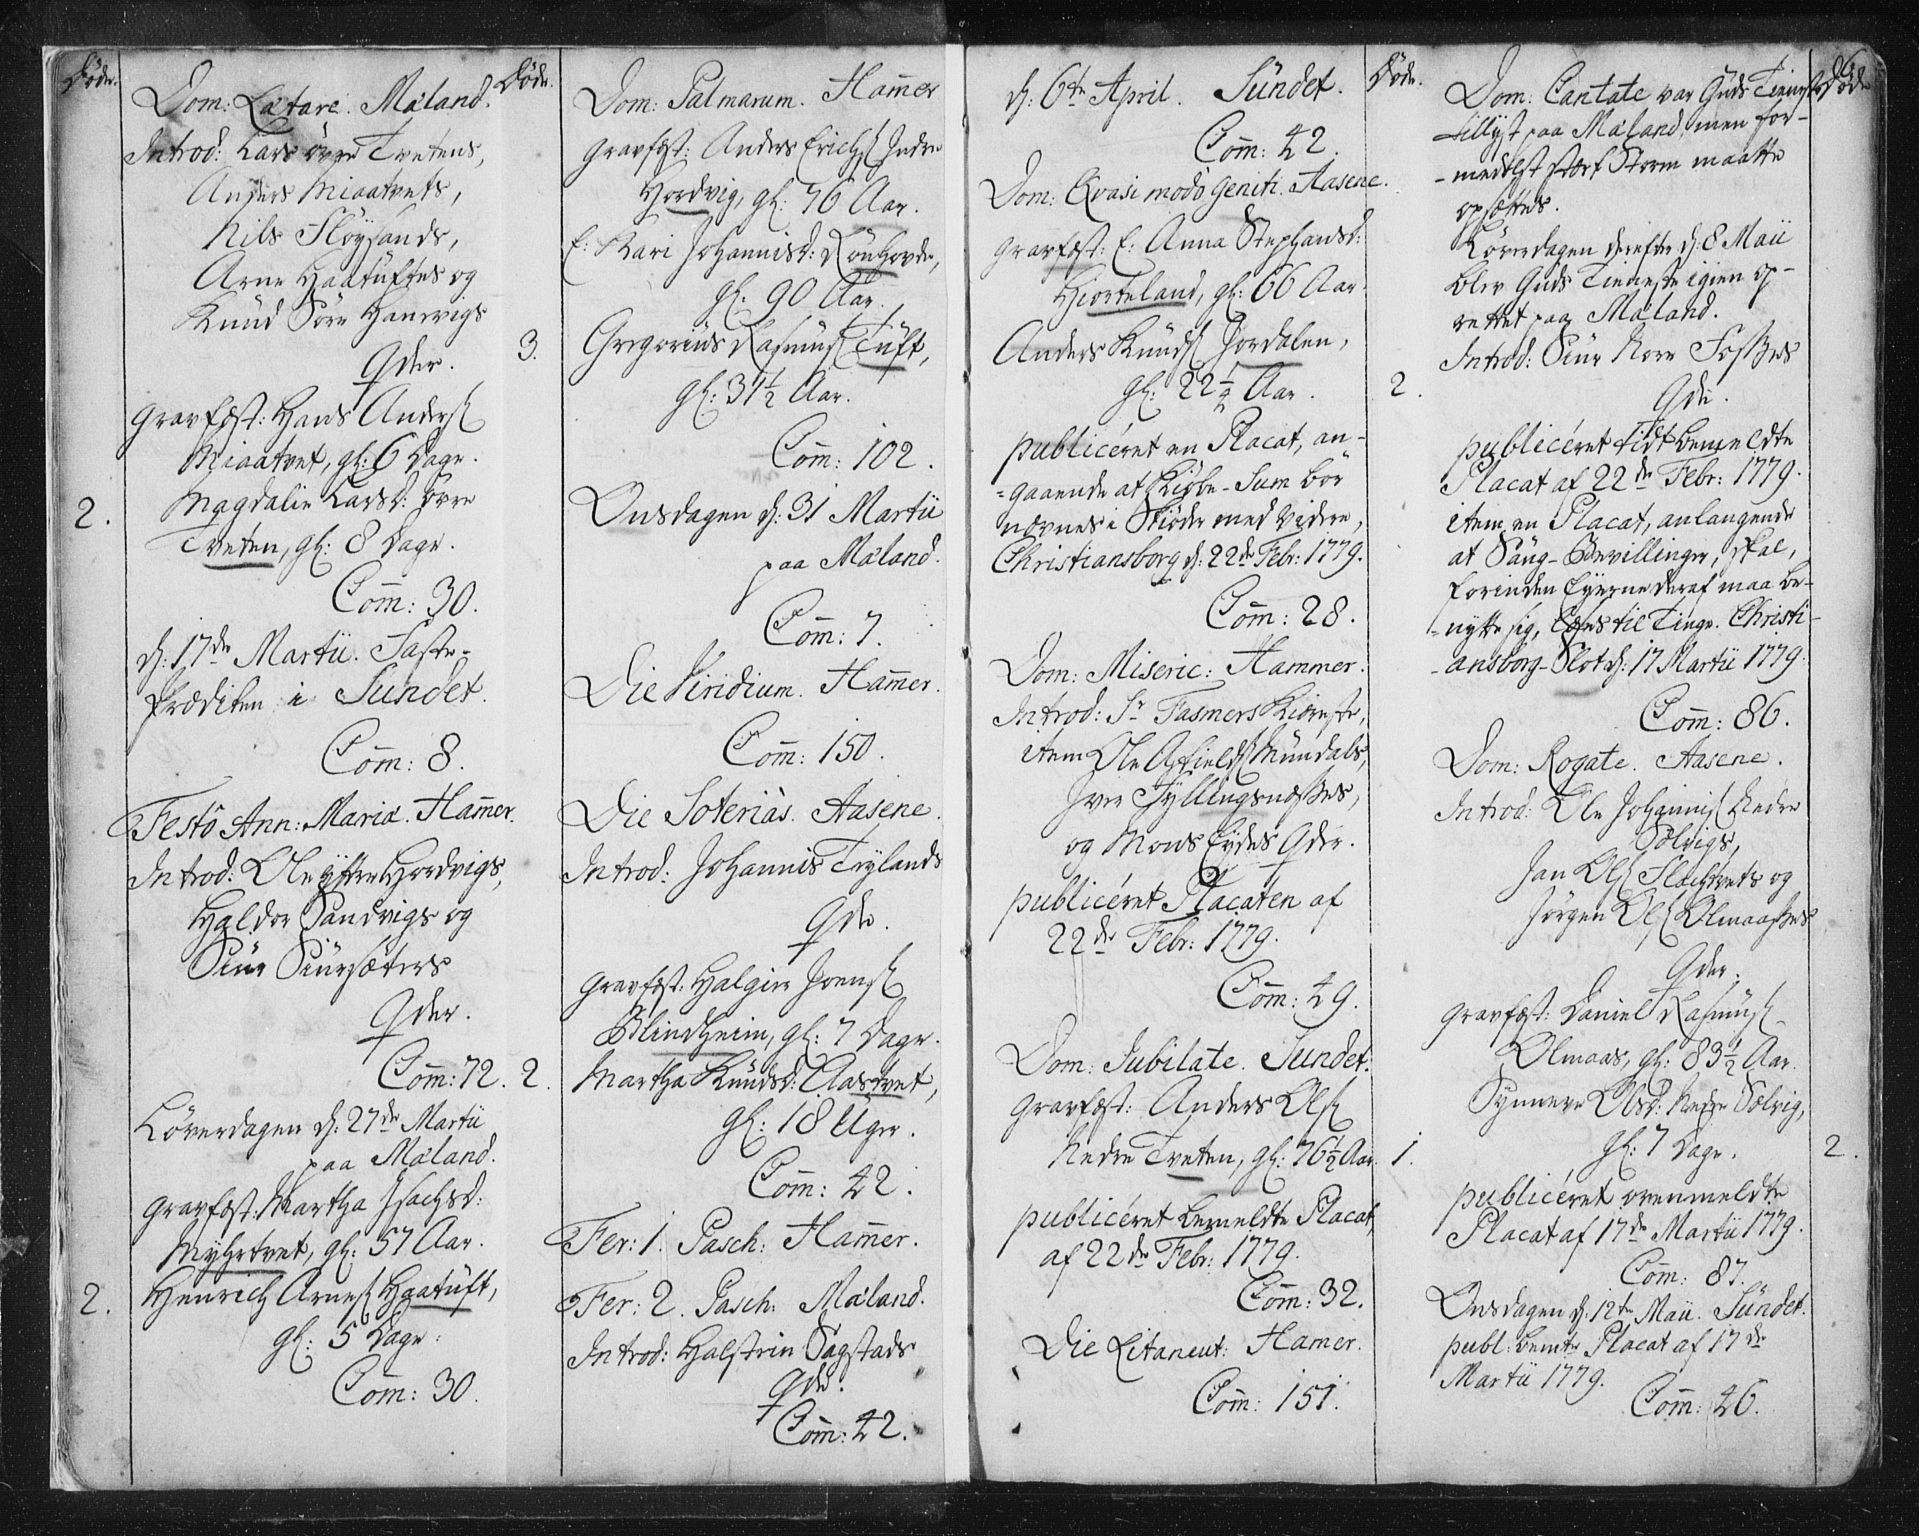 Døde.
Dom: Lætare. Mæland.
Introd: Lars øvre Tvetens,
Anders Miaatvets,
Nils Fløysands,
Arne Haatuftes og
Knud Søre Hanevigs
Qder.
Gravfæst: Hans Anders
Miaatvet, gl: 6 Dage.
Magdalin Larsd: øvre
2.
Tveten, gl: 8 Dage.
Com̄: 30.
d: 17de Martii. Faste-
Prædiken i Sundet.
Com̄: 8.
Festo Ann: Mariæ. Ham̄er.
Introd: Ole yttre Hordvigs,
Haldor Sandvigs og
Siur Siursæters
Qder.
Com̄: 72.
Løverdagen d: 27de Martii
paa Mæland.
Gravfæst: Martha Isachsd:
Myhrtvet, gl: 57 Aar.
Henrich Arnes Haatuft,
2.
gl: 5 Dage.
Com̄: 30.
Døde.
Dom: Palmarum. Ham̄er
Gravfæst: Anders Erichs Indre
Hordvig, gl: 76 Aar.
E: Kari Johannisd: Rønhovde,
gl: 90 Aar.
3.
Gregorius Rasmus Tuft,
gl: 31½ Aar.
Com̄: 102.
Onsdagen d: 31 Martii
paa Mæland.
Com̄: 7.
Die Viridium. Ham̄er.
Com̄: 150.
Die Soterias. Aasene.
Introd: Johannis Teylands
Qde.
Gravfæst: Halgier Joens
Blindheim, gl: 7 Dage.
2.
Martha Knudsd: Aastvet,
gl: 18 Uger.
Com̄: 42.
Fer: 1. Pasch: Ham̄er.
Fer: 2. Pasch: Mæland.
Introd: Halstein Sagstads
Qde.
Com̄: 42.
d: 6te April. Sundet.
Com̄: 42.
Dom: Qvasimodo Geniti. Aasene.
Gravfæst: E: Anna Stephansd:
Hiorteland, gl: 66 Aar.
Anders Knuds Jordalen,
gl: 22½ Aar.
publiceret en Placat, an-
-gaaende at Kiøbe-Sum bør
nævnes i Skiøder med videre,
Christiansborg d: 22de Febr: 1779.
Com̄: 28.
Dom: Miseric: Hammer.
Introd: Sr Fasmers Kiæreste,
item Ole Mundals,
Iver Hyllingsnæsses,
og Mons Eydes Qder.
publiceret Placaten af
22de Febr: 1779.
Com̄: 49.
Dom: Jubilate. Sundet.
Gravfæst: Anders Ols
Nedre Tveten, gl: 76½ Aar.
publiceret bemeldte Placat,
af 22de Febr: 1779.
Com̄: 32.
Die Litaneut: Hamer.
Com̄: 151.
Døde.
2.
1.
Dom: Cantate var Guds Tieneste
tillyst paa Mæland, men for-
-medelst stærk Storm maatte
opsættes.
Løverdagen derefter d: 8 Maii
blev Guds Tieneste igien op-
rettet paa Mæland.
Introd: Siur Nore Fosses
Qde.
publiceret tidtbemeldte
Placat af 22de Febr: 1779.
item en Placat, anlangende
at Saug-Bevillinger, skal,
forinden Eyerne deraf maa be-
-nytte sig, læses til Tinge. Christi-
-ansborg-Slot d: 17 Martii 1779.
Com̄: 86.
Dom: Rogate. Aasene.
Introd: Ole Johannis Nedre
Sølvigs,
Jan Ols Flachtvets og
Jørgen Ols Olmaasses
Qder.
Gravfæst: Daniel Rasmus
Olmaas, gl: 83½ Aar.
Synneve Olsd: Nedre Sølvig,
gl: 7 Dage.
2.
publiceret ovenmeldte
Placat af 17de Martii 1779.
Com̄: 87.
Onsdagen d: 12te Maii. Sundet.
publ: bemte Placat af 17de
Martii 1779.
Com̄: 46.
Døde